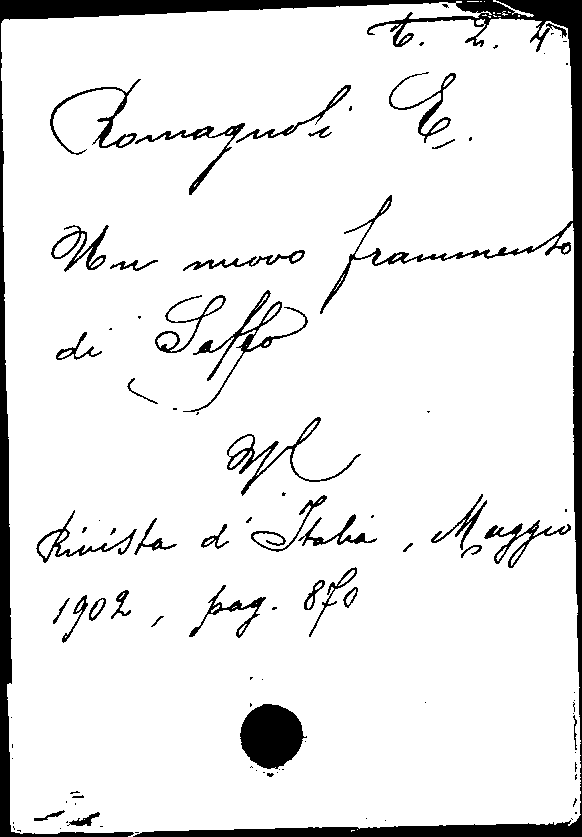 t. 2. 4
Romagnoli E.
Un nuovo frammento
di Saffo
Rivista d'Italia, Maggio
1902, pag. 870